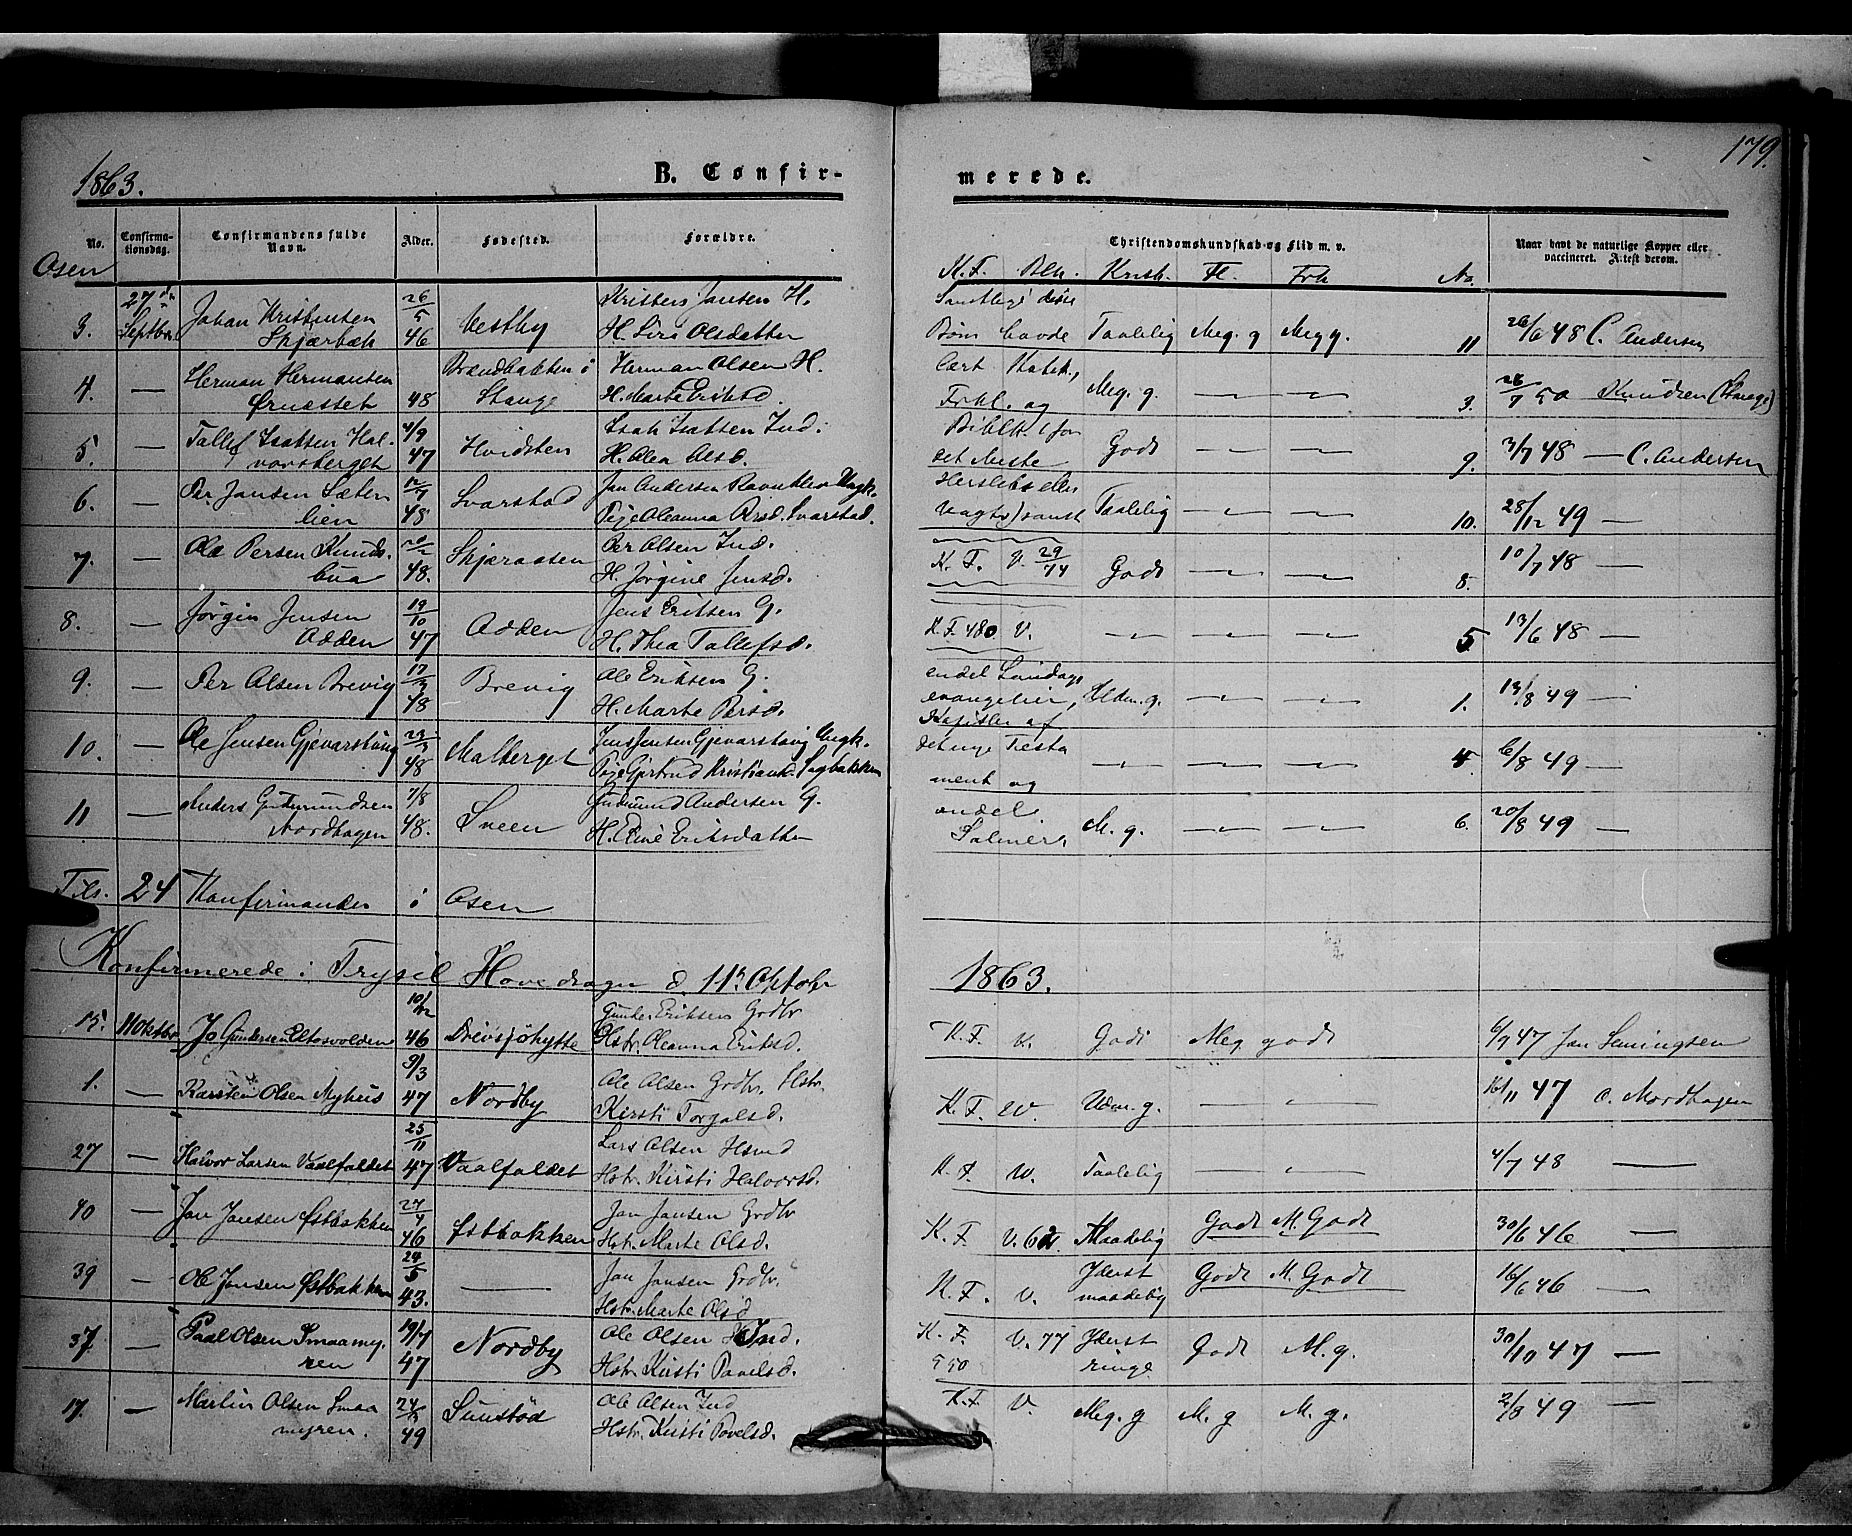 179.
1863.
B. Confir-
merede.
No.
Confirma-
tionsdag.
Confirmandens fulde
Navn.
Alder.
Fødested.
Forældre.
Christendomskundskab og Flid m. v.
Naar havt de naturlige Kopper eller
vaccineret. Attest derom.
Osen
K. F. Blk. Kristk. Fl. Frh No.
3. 27de Septbr. Johan Kristensen 26/5 46 Vestby Kristen Jansen H.
H. Siri Olsdatter
Samtlige disse
Børn havde Taalelig Meg. g Meg g. 11 26/6 48 C. Andersen
4. — Herman Hermansen 48 Brændbakken i Stange Herman Olsen H.
H. Marte Eriksd.
Lært Katek.,
Frkl. og Meg. g. 3. 26/7 50 Knudsen (Stange)
5. — Tallef Isaksen Hal-
vorsberget 4/9 47 Hvidsten Isak Isaksen Ind:
H. Olea Olsd.
Biblh. (for
det Meste Godt 9. 3/7 48 — C. Andersen
6. — Per Jansen Sæten
lien 12/7 48 Svarstad Jan Andersen Ungk.
Pige Oleanna Persd. Svarstad.
Herslebs eller
Vogts) samt Taalelig 10. 28/12 49 —
7. — Ole Persen Knuds-
bua 48. Skjæraasen Per Olsen Ind.
H. Jørgine Jensd.
K. F. V. 29/74 Godt 8. 10/7 48 —
8. — Jørgin Jensen
Odden 19/10 47 Odden Jens Eriksen G.
H. Thea Tallefsd.
K F. 480 V. 5 13/6 48 —
9. — Per Olsen Brevig 17/3 48 Brevig Ole Eriksen G.
H. Marte Persd.
endel Søndags
evangelier, Udm. g. 1. 13/8 49 —
10. — Ole Jensen Gjevarstuvg 23/3 48 Malberget Jens Jensen Gjevarstuvg Ungk.
Pige Gjertrud Kristiansd. Sagbakken
Kapitler af
det nye Testa
ment og 4. 6/8 49 —
11 — Anders Gudmundsen
Nordhagen 7/8 48. Sneen Gudmund Andersen G.
H. Eline Eriksdatter
endel
Salmer M. g. 6. 20/8 49 —
Tils. 24 Konfirmander i Osen
Konfirmerede i Trysil Hovedsogn d. 11te Oktobr 1863.
15. 11 Oktbr Jo Gundersen Eltosvolden 10/12 46 Drevsjøhytte Gunder Eriksen Grdbr
Hstr. Oleanna Eriksd.
K. F. V. Godt Meg godt 6/7 47 Jan Semingsen
1. — Karsten Olsen Nyhus 9/3 47 Nordby Ole Olsen Grdbr. Hstr.
Kirsti Torgalsd.
K. F. W. Udm. g. 16/11 47 O. Nordhagen
27 — Halvor Larsen Vaalfaldet 25/11 47 Vaalfaldet Lars Olsen Hsmd
Hstr. Kirsti Halvorsd.
K. F. W. Taalelig 4/7 48 —
40 — Jan Jansen Østbakken 27/4 46 Østbakken Jan Jansen Grdbr
Hstr. Marte Olsd.
K. F. V. Maadelig Godt M. Godt 30/6 46 —
39 — Ole Jansen Østbakken 24/5 43. — Jan Jansen Grdbr.
Hstr. Marte Olsd
K. F. V. Yderst
maadelig Godt M. Godt 16/6 46 —
37 — Paal Olsen Smaamy-
ren 19/7 47 Nordby Ole Olsen Ind.
Hstr. Kirsti Pavelsd.
K. F.
550 V. 77 Yderst
ringe Godt M. g. 30/10 47 —
17. — Martin Olsen Smaa
myren. 24/3 49 Sunstød Ole Olsen Ind
Hstr. Kirsti Pavelsd.
K. F V. Meg. g M. g M. g. 2/8 49 —